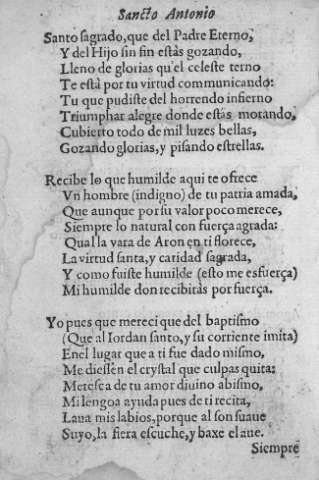 Sancto Antonio
Santo sagrado, que del Padre Eterno,
Y del Hijo sin fin estàs gozando,
Lleno de glorias qu'el celeste terno
Te està por tu virtud communicando:
Tu que pudiste del horrendo infierno
Triumphar alegre donde estás morando,
Cubierto todo de mil luzes bellas,
Gozando glorias, y pisando estrellas.
Recibe lo que humilde aqui te ofrece
Vn hombre (indigno) de tu patria amada,
Que aunque por su valor poco merece,
Siempre lo natural con fuerça agrada:
Qual la vara de Aron en ti florece,
La virtud santa, y caridad sagrada,
Y como fuiste humilde (esto me esfuerça)
Mi humilde don recibiràs por fuerça.
Yo pues que mereci que del baptismo
(Que al Iordan santo, y su corriente imita)
En el lugar que a ti fue dado mismo,
Me diessen el crystal que culpas quita:
Metesea de tu amor diuino abismo,
Mi lengoa ayuda pues de ti recita,
Laua mis labios, porque al son suaue
Suyo, la fiera escuche, y baxe el aue.
Siempre